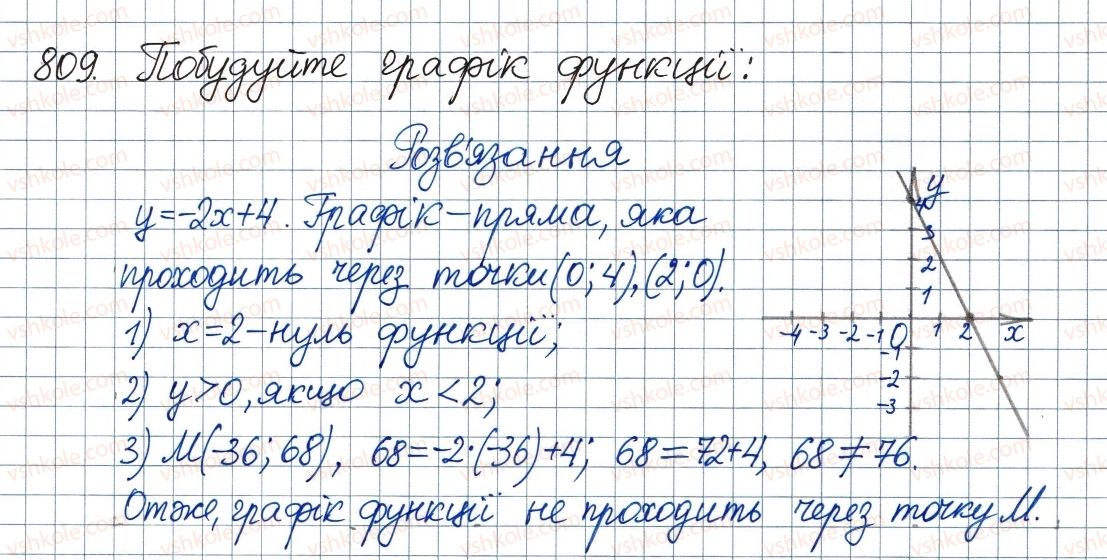 809. Побудуйте графік функції:
Розв'язання
y=-2x+4. Графік – пряма, яка
проходить через точки (0; 4), (2; 0).
1) x=2 – нуль функції;
2) y>0, якщо x<2;
3) M(-36; 68), 68=-2·(-36)+4; 68=72+4, 68≠76.
Отже, графік функції не проходить через точку M.
y
4
3
2
1
-4 -3 -2 -1 0 1 2 x
-1
-2
-3
vshkole.com